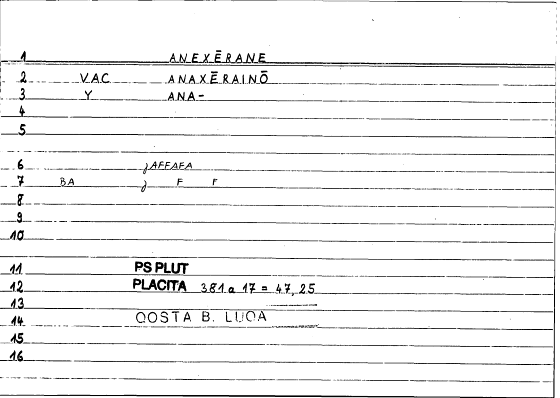 1 ANEXĒRANE
2 VAC ANAXĒRAINŌ
3 Y ANA-
4
5
6 jAFFAFA
7 BA j F F
8
9
10
11 PS PLUT
12 PLACITA 381a 17 = 47,25
13
14 QOSTA B. LUQA
15
16